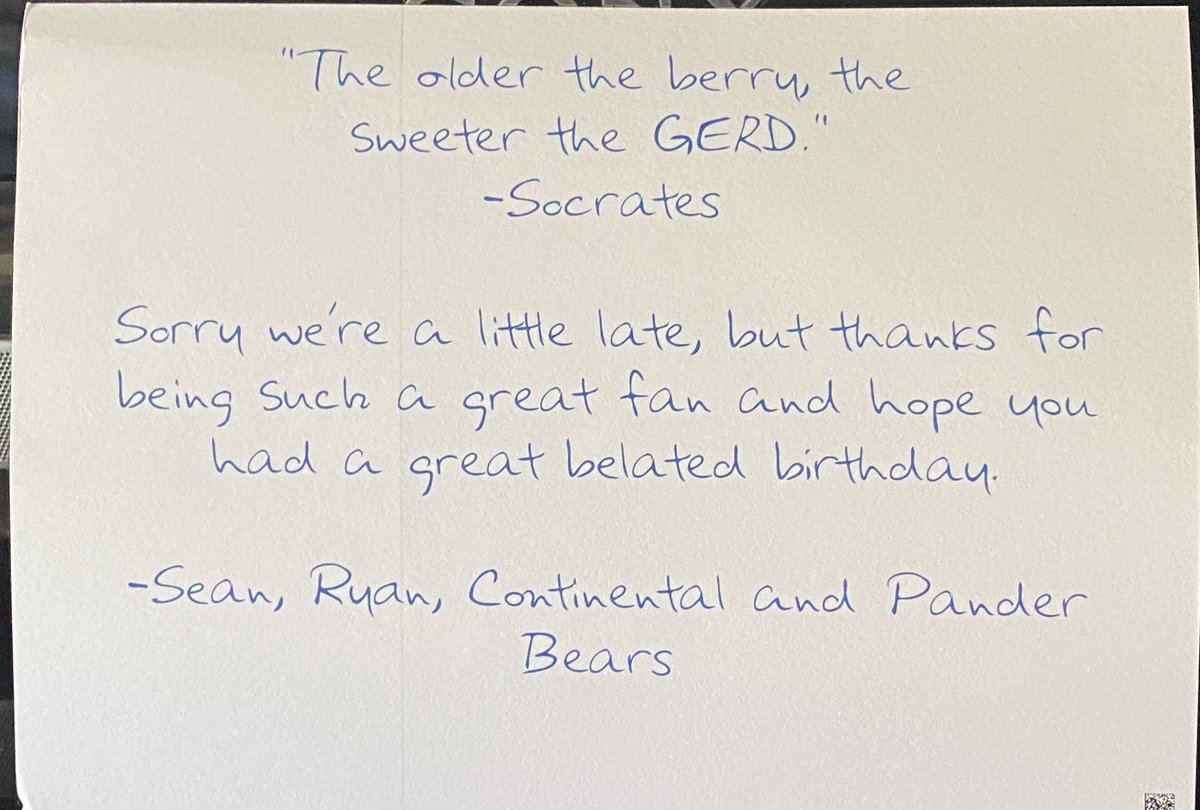 "The older the berry, the
sweeter the GERD."
-Socrates
Sorry we're a little late, but thanks for
being such a great fan and hope you
had a great belated birthday.
-Sean, Ryan, Continental and Pander
Bears